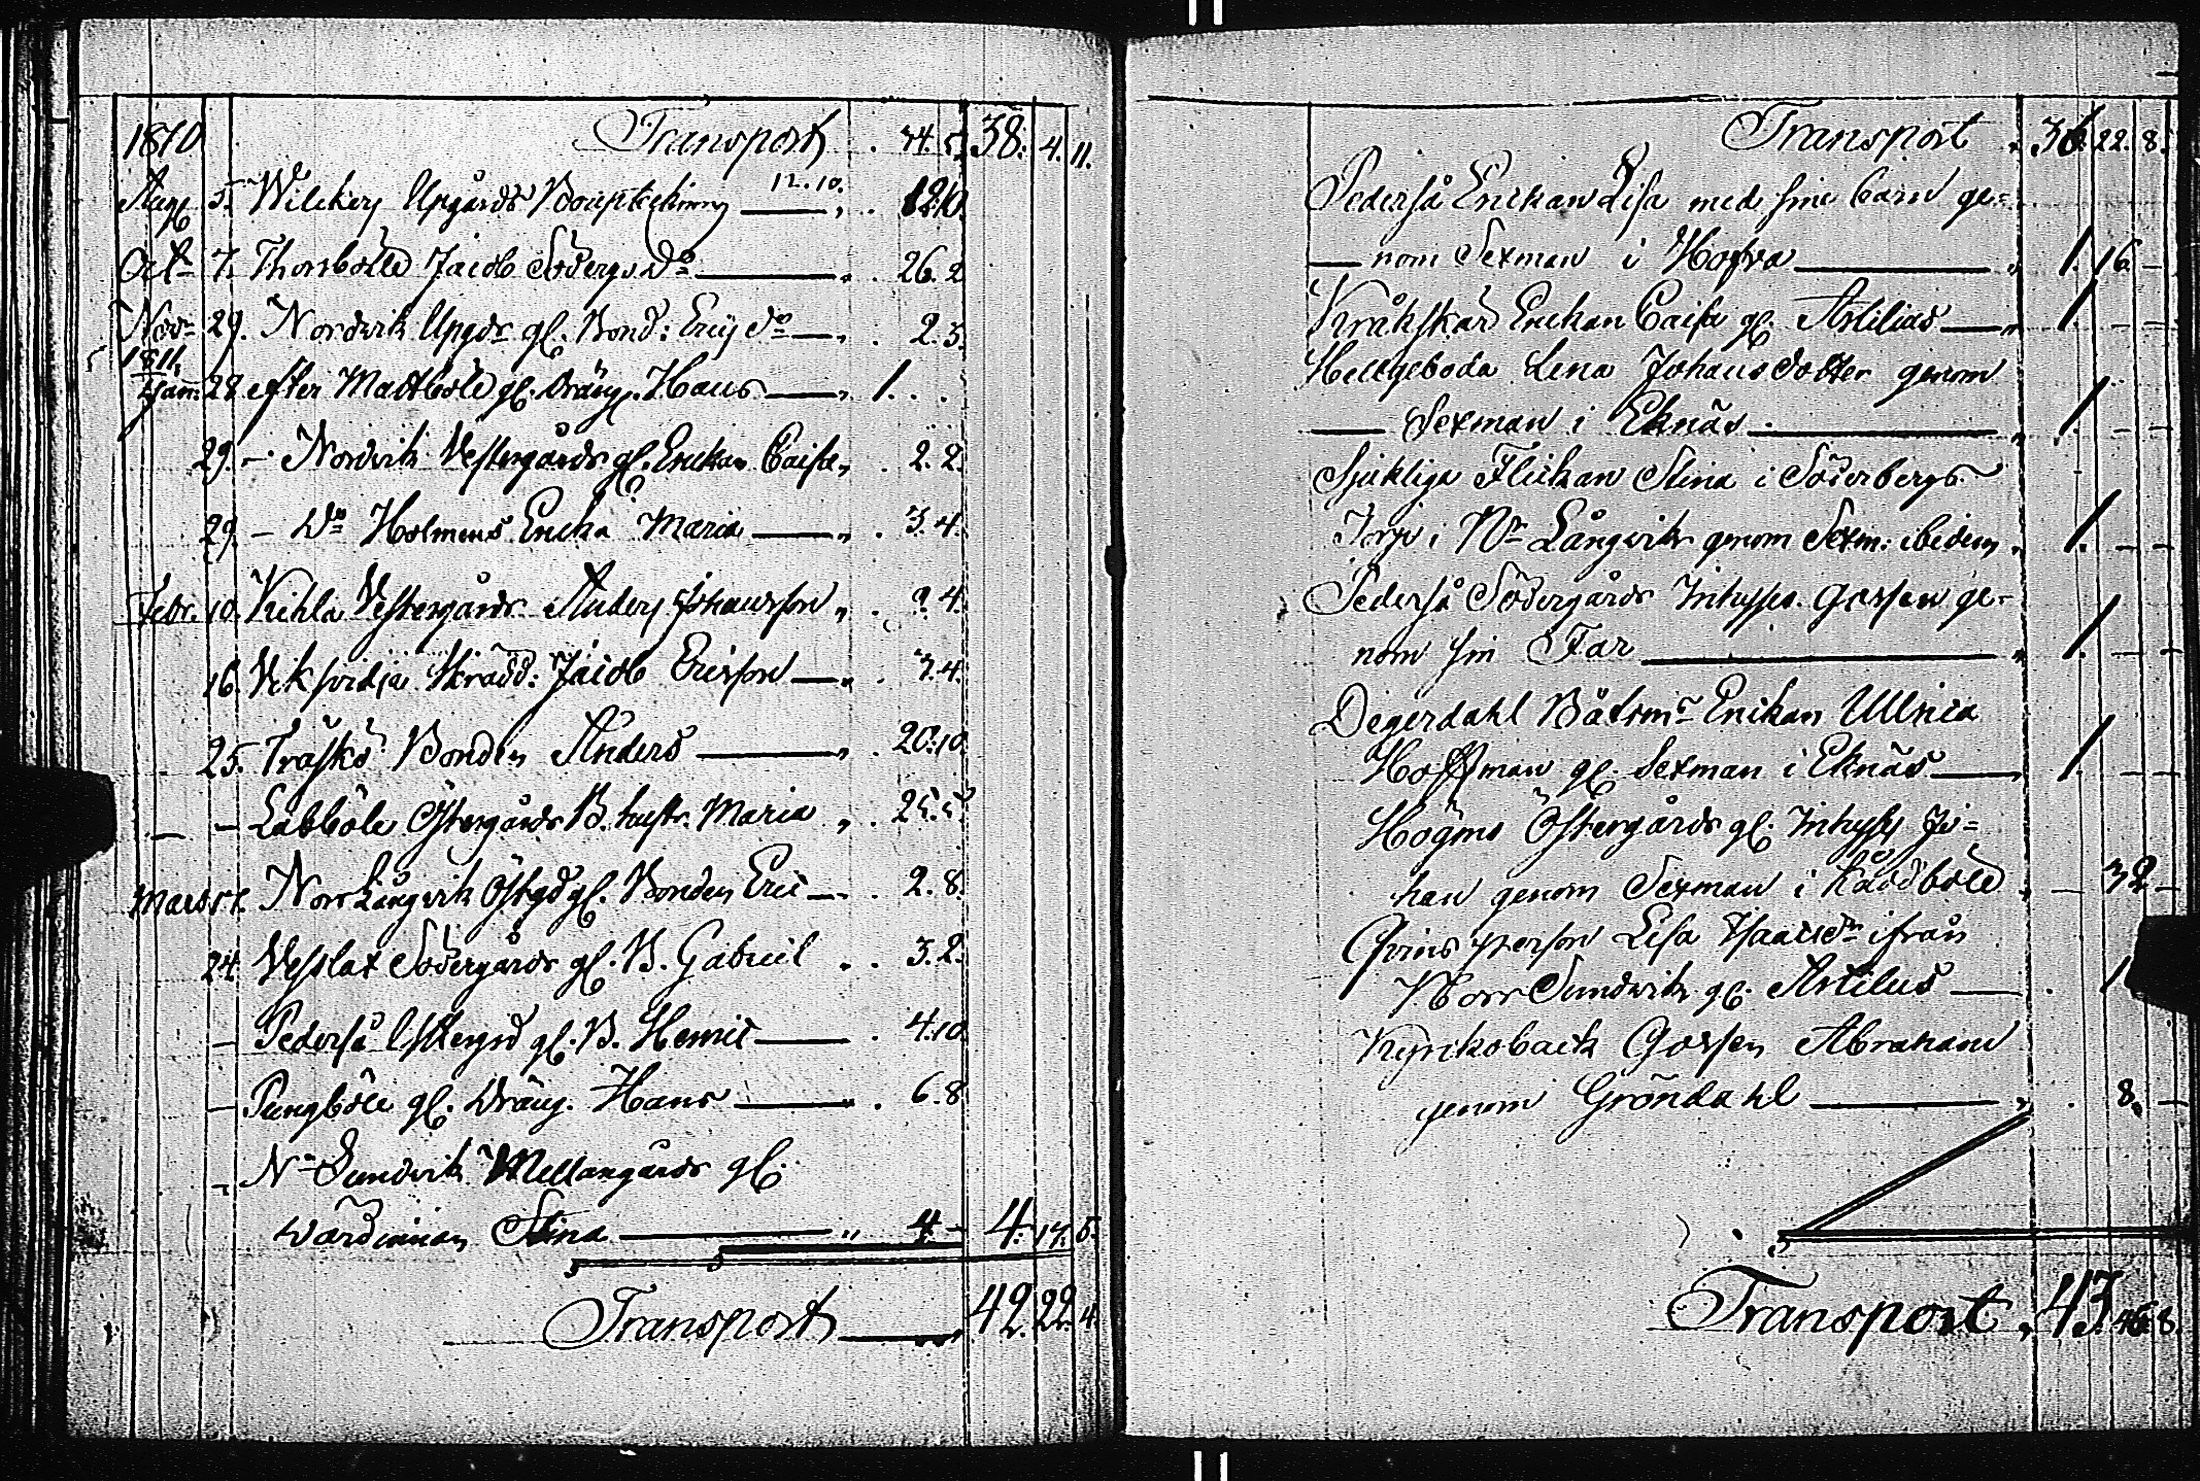 1810 Transport . 34. 5. 38. 4. 11.
Aug 5. Wilckens Upgårds 12.10. 12.10.
Oct: 7. Thorsböle Jacob Söderg. Do 26. 2
Nov: 29. Nordvik Upgds gl. Bond: Eric Do 2. 3.
1811.
Jan: 28 efter Mattböle gl. Dräng. Hans 1. . .
29. – Nordvik Vestergårds gl. Enckan Caisa 2. 2.
29. – Do Holmens Encka Maria 3. 4.
Febr. 10. Kihla Vestergårds Anders Johansson 9. 4.
16. Vik Skrädd: Jacob Ericsson 3. 4.
25. Träsko Bonden Anders 20. 10.
– – Labböle Östergårds B. hustr. Maria 25. 5.
Mars 17. Norr Långvik Östgd gl. Bonden Eric 2. 8.
24. Vesslax Södergårds gl. B. Gabriel 3. 2.
– Pederså Östergd gl. B. Henric 4. 10.
– Pungböle gl. Dräng. Hans 6. 8
– Nr Sundvik Mellangårds gl.
Värdinnan Stina 4 – 4. 17. 5.
Transport 42. 22. 4.
Transport 36. 22. 8.
Pederså Enckan Lisa med sine barn ge-
nom Sexman i Hofva 1. 16 –
Kråkskär Enckan Caisa gl. Artilius 1. – –
Hellgeboda Lena Johansdotter genom
Sexman i Eknäs 1. – –
Sjukliga Flickan Stina i Söderbergs
Torp i Nr Långvik genom Sexm: ibidem 1. – –
Pederså Södergårds Inhyses Gossen ge-
nom sin Far 1. – –
Degerdahl Båtsms Enckan Ullrica
Hoffman gl. Sexman i Eknäs 1. – –
Högmo Östergårds gl. Inhyses Jo-
han genom Sexman i Råddböle – 32 –
Qvins person Lisa Isaacsdr ifrån
Norr Sundvik gl. Artilius 1
Kyrckoback Gossen Abraham
genom Gröndahl 8. –
Transport 43. 46. 8.